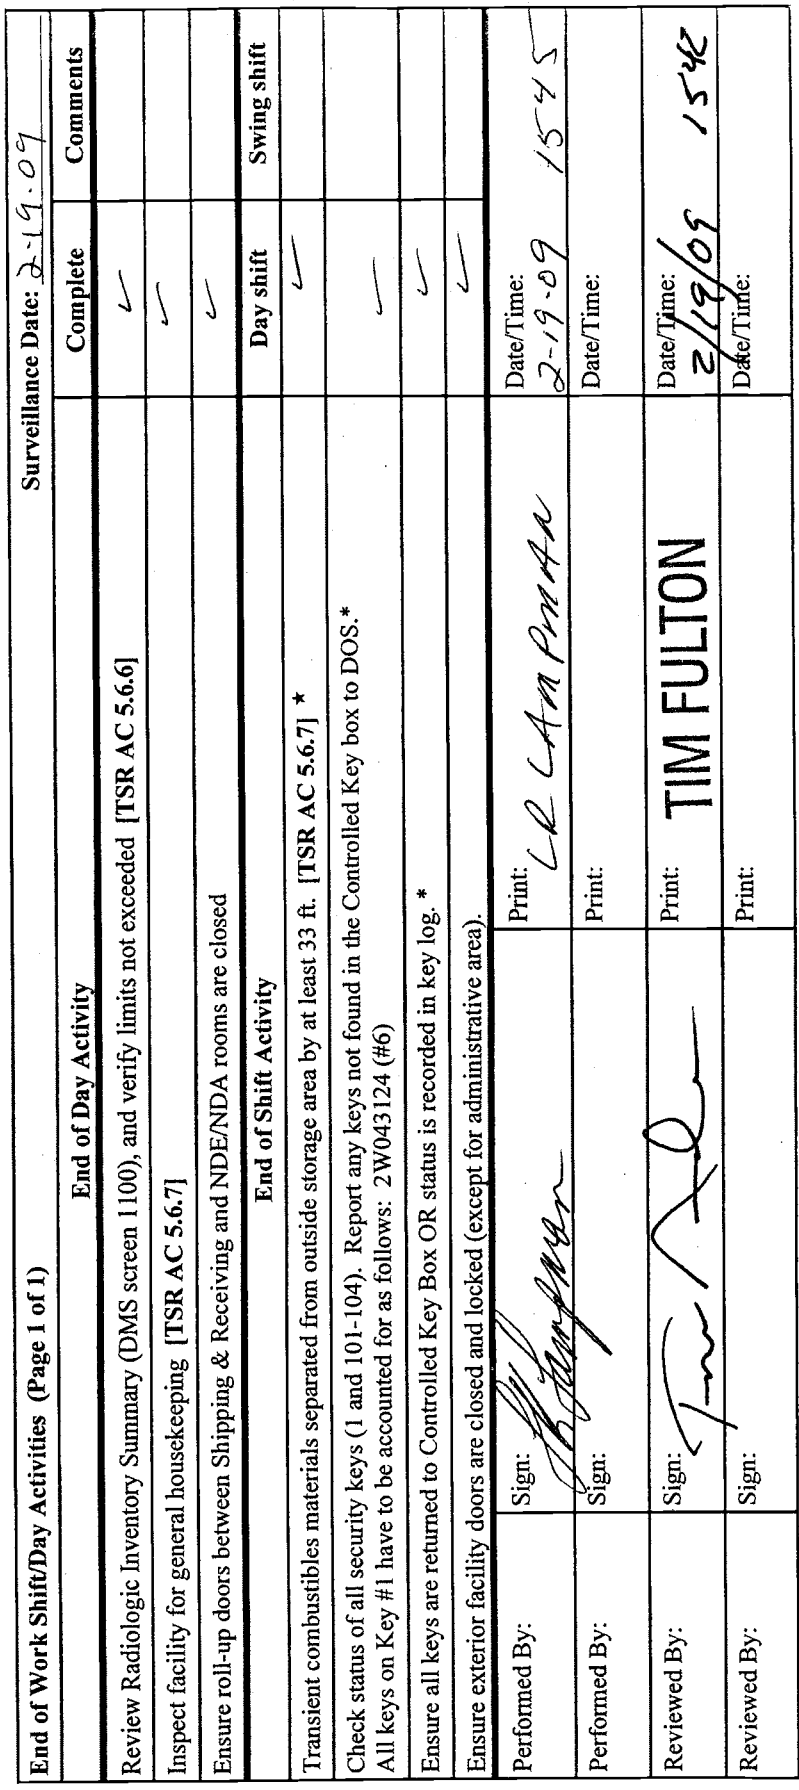 End of Work Shift/Day Activities (Page 1 of 1) Surveillance Date: 2-19-09
End of Day Activity Complete Comments
Review Radiologic Inventory Summary (DMS screen 1100), and verify limits not exceeded [TSR AC 5.6.6] ✓
Inspect facility for general housekeeping [TSR AC 5.6.7] ✓
Ensure roll-up doors between Shipping & Receiving and NDE/NDA rooms are closed ✓
End of Shift Activity Day shift Swing shift
Transient combustibles materials separated from outside storage area by at least 33 ft. [TSR AC 5.6.7] * ✓
Check status of all security keys (1 and 101-104). Report any keys not found in the Controlled Key box to DOS.*
All keys on Key #1 have to be accounted for as follows: 2W043124 (#6) ✓
Ensure all keys are returned to Controlled Key Box OR status is recorded in key log. * ✓
Ensure exterior facility doors are closed and locked (except for administrative area). ✓
Performed By: Sign: Print: LR LAMPMAN Date/Time: 2-19-09 1545
Performed By: Sign: Print: Date/Time:
Reviewed By: Sign: Print: TIM FULTON Date/Time: 2/19/09 1542
Reviewed By: Sign: Print: Date/Time: